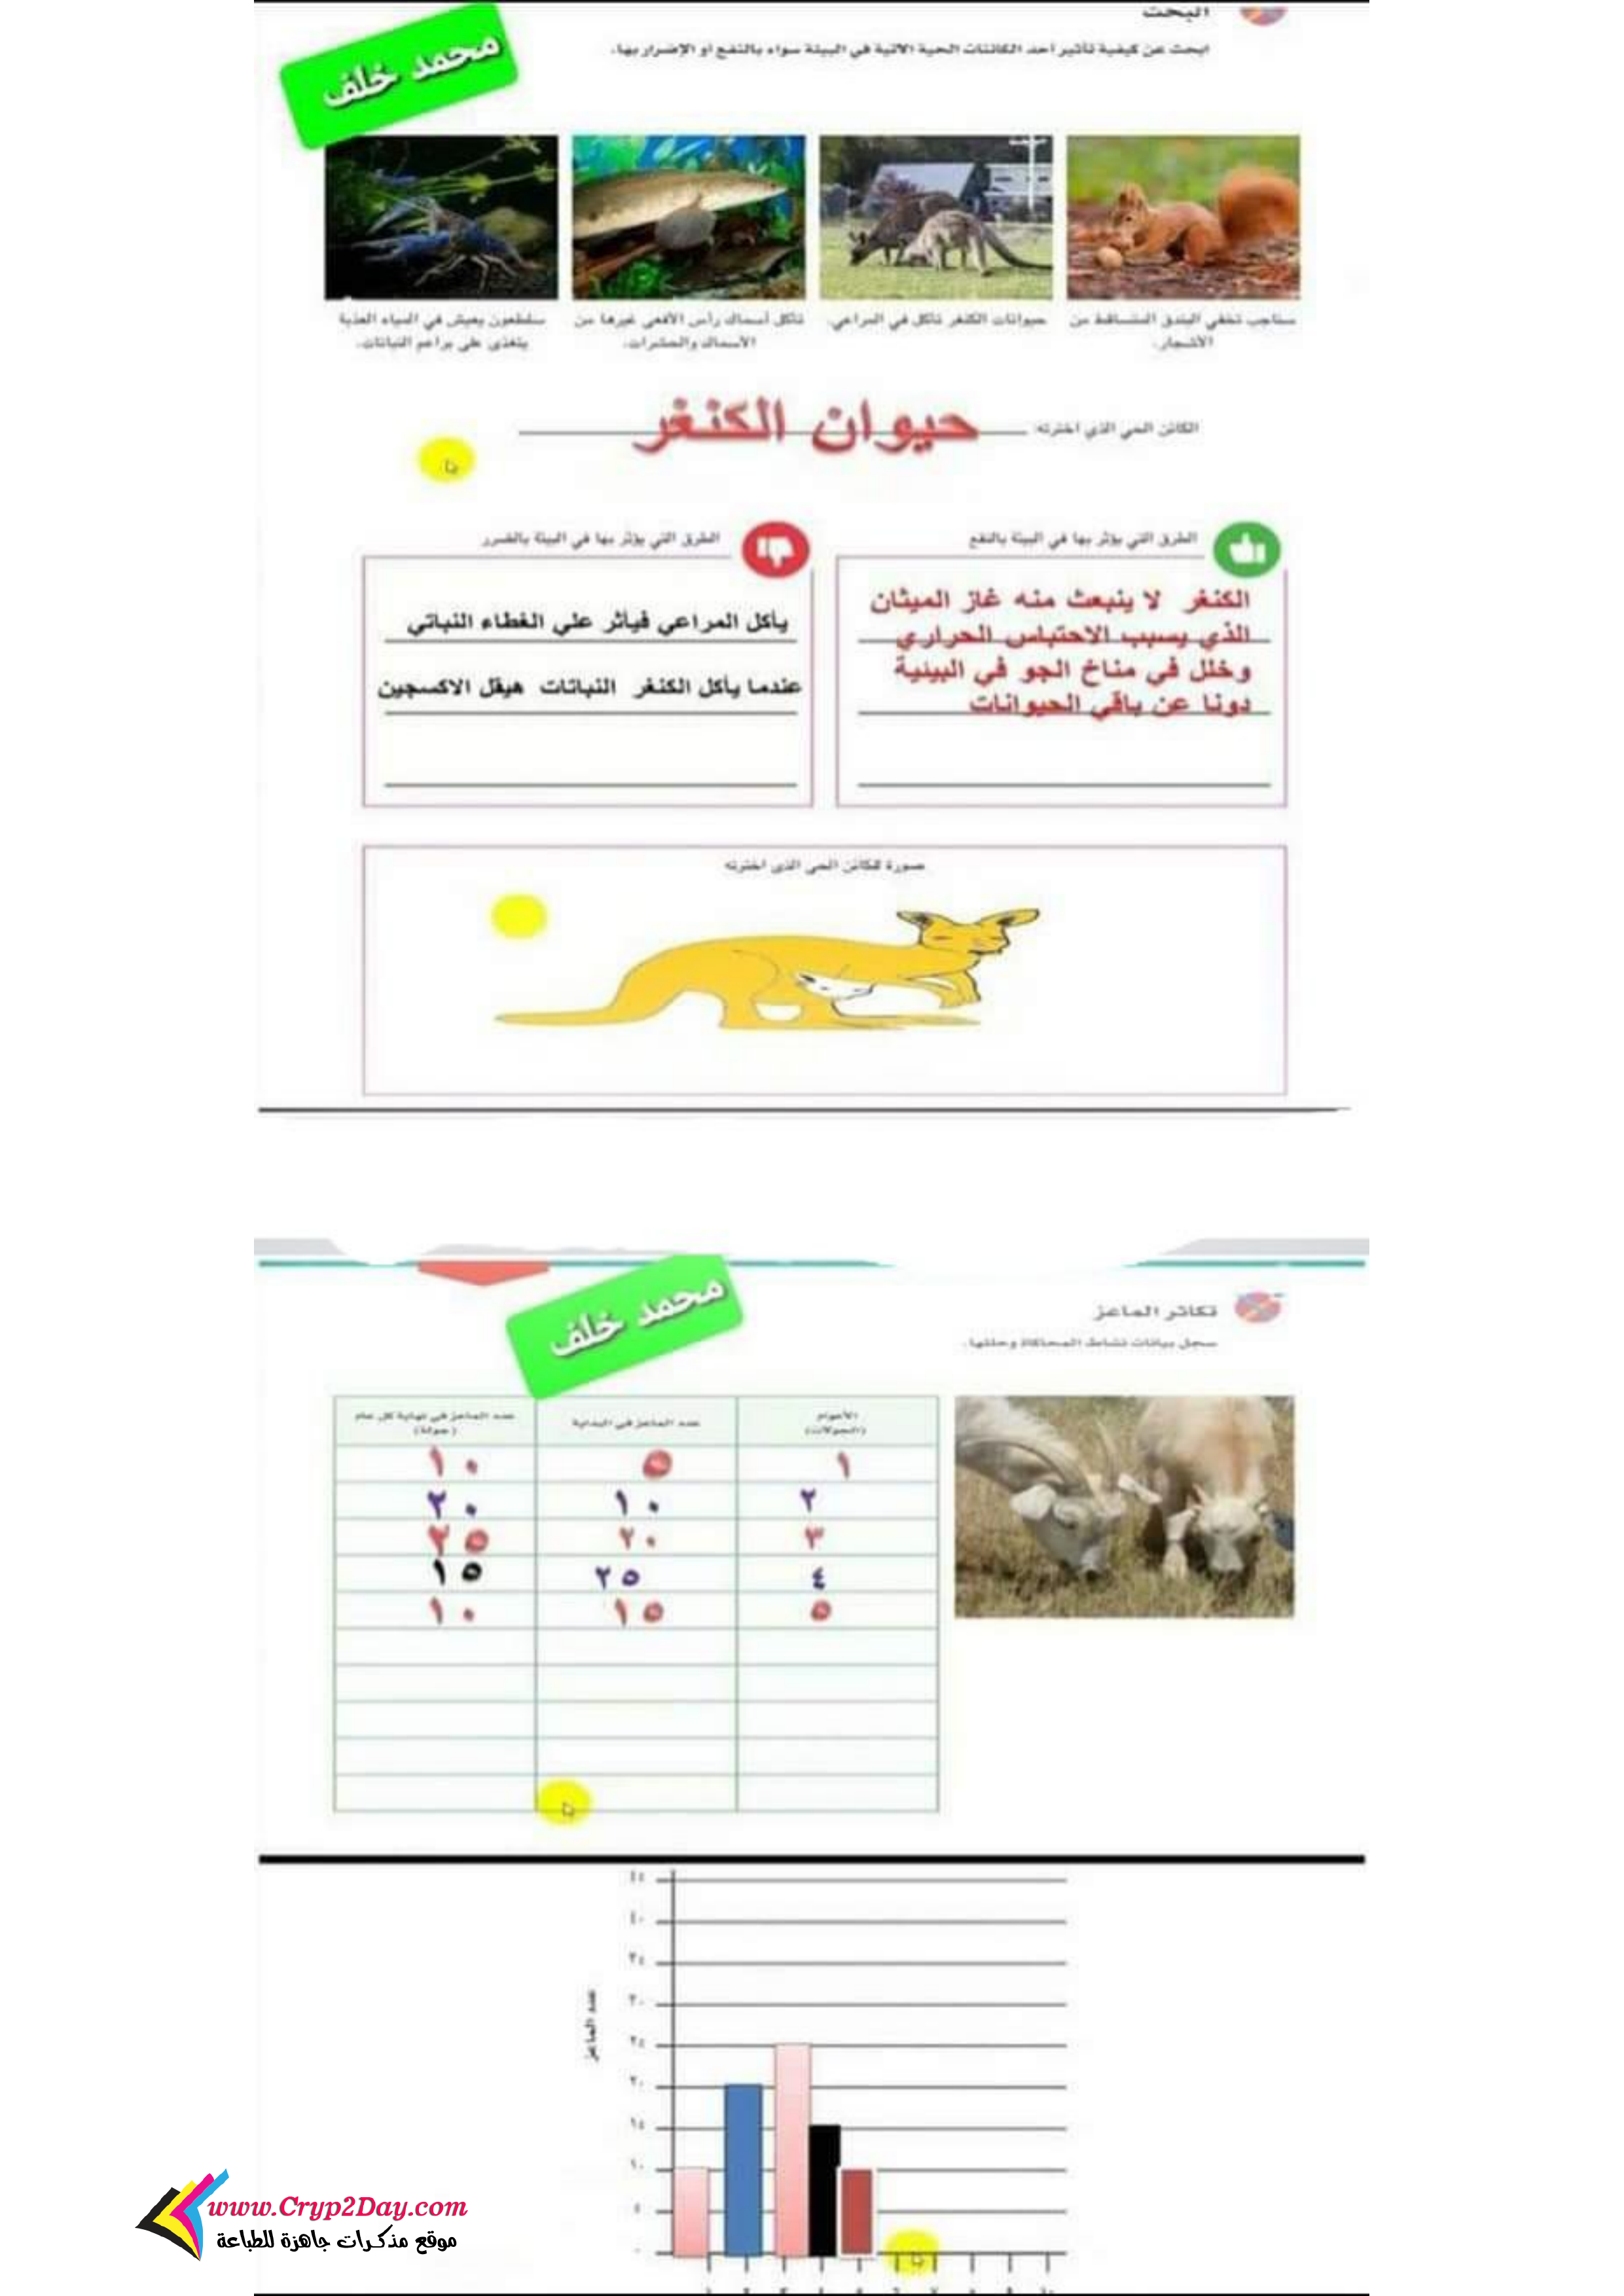 البحث
ابحث عن كيفية تأثير أحد الكائنات الحية الآتية في البيئة سواء بالنفع أو الإضرار بها.
محمد خلف
سناجب تخفي البندق المتساقط من
الأشجار.
حيوانات الكنغر تأكل في المراعي.
تأكل أسماك رأس الأفعى غيرها من
الأسماك والحشرات.
سلطعون يعيش في المياه العذبة
يتغذى على براعم النباتات.
الكائن الحي الذي اخترته:
حيوان الكنغر
الطرق التي يؤثر بها في البيئة بالنفع
الكنغر لا ينبعث منه غاز الميثان
الذي يسبب الاحتباس الحراري
وخلل في مناخ الجو في البيئية
دونا عن باقي الحيوانات
الطرق التي يؤثر بها في البيئة بالضرر
يأكل المراعي فيأثر علي الغطاء النباتي
عندما يأكل الكنغر النباتات هيقل الاكسجين
صورة للكائن الحي الذي اخترته
محمد خلف
تكاثر الماعز
سجل بيانات نشاط المحاكاة وحللها.
الأعوام (الجولات) عدد الماعز في البداية عدد الماعز في نهاية كل عام (جولة)
١ ٥ ١٠
٢ ١٠ ٢٠
٣ ٢٠ ٢٥
٤ ٢٥ ١٥
٥ ١٥ ١٠
عدد الماعز
٤٥
٤٠
٣٥
٣٠
٢٥
٢٠
١٥
١٠
٥
٠
www.Cryp2Day.com
موقع مذكرات جاهزة للطباعة